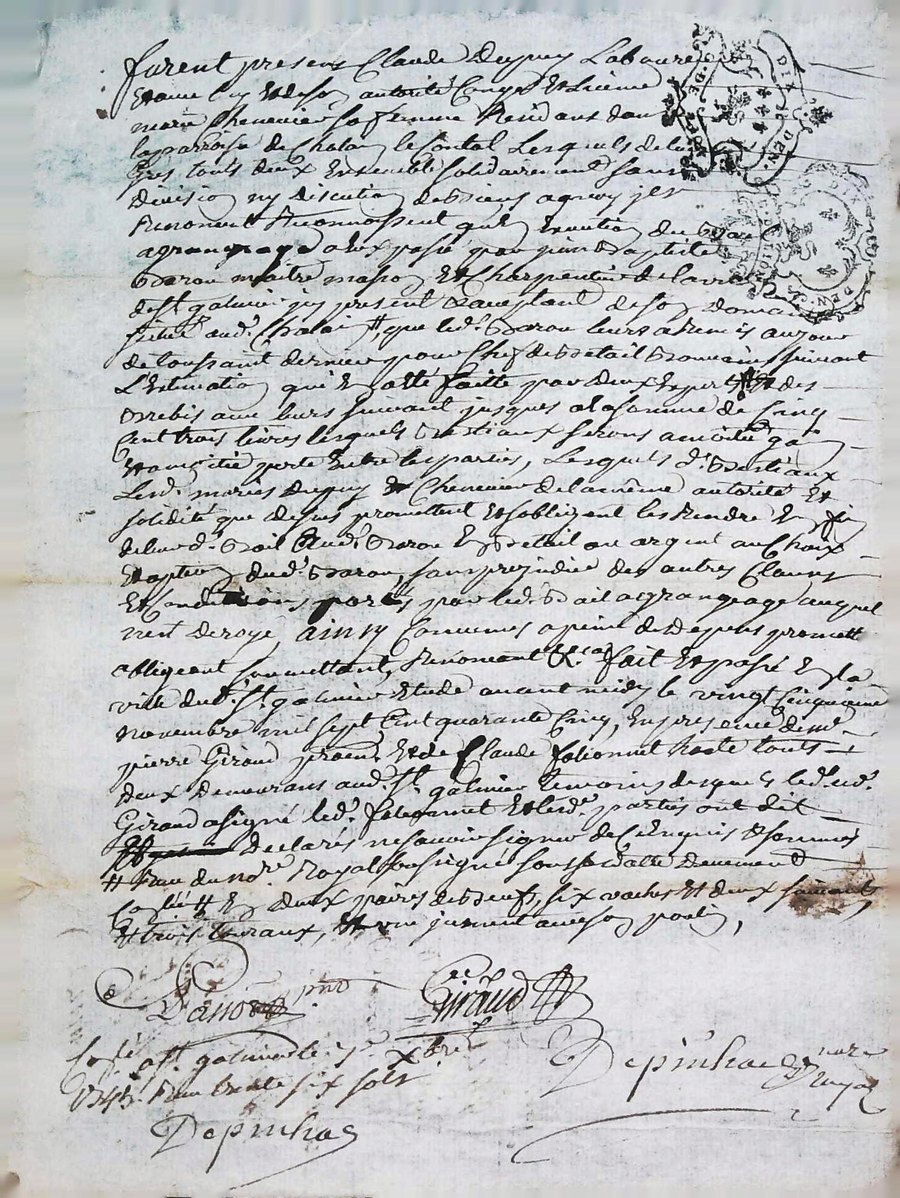 furent presens Claude Dupuy Laboure
Et avec luy Et de son autorité Congé Et Licence
marie Chenevier sa femme Residant dans
la parroisse de Chalain le Contal Lesquels de leur
Gres touts deux Ensemble solidairement sans
Division ny Discution de biens a quoy jls
Renoncent Reconnoissent qu'en Execution du bail
agrangeage a Eux passé par jean Baptiste
Baron maitre masson Et Charpentier de la ville
de St galmier jcy present Et aceptant de son Domaine
situé aud. Chalain #, que led. Baron leurs a Remis au jour
de toussaint dernier pour Chef de Betail Romain suivant
L'Estimation qui En a été faitte par deux Expert # Et des
Brebis avec leurs suivant jusques a la somme de Cinq
Cent trois livres lesquels Bestiaux seront a moitié gain
Et a moitié perte Entre les parties, Lesquels d. Bestiaux
Lesd. mariés dupuy Et Chenevier de la même autorité Et
solidité que dessus promettent Et s'obligent les Rendre En fin
de leurd. Bail aud. Baron En Betail ou argent au Choix
Et option dud. Baron, sans prejudice des autres Clauses
Et Conditions portés par led. Bail agrangeage auquel
n'est Derogé, ainsy Convenus a peine de Depens promett
obligeant soumettant, Renonceant &ca fait Et passé En la
ville dud. St. galmier Etude avant midy le vingt Cinquieme
novembre mil sept Cent quarante Cinq, En presence de mr.
pierre Giraud pratn. Et de Claude hoste touts
deux Demeurans aud. St. galmier temoins desquels led.
Giraud a signé led. Et lesd. parties ont dit
Declarés ne savoir signer de Ce Enquis Et sommés
# Par du Royal soussigné sous Datte Deuement
Con[trô]lé # En deux paires de Bœufs, six vaches Et deux suivants
Et trois tauraux, Et une jument avec son poulin,
Baron pnt
Giraud
Con[trô]lé a St. galmier le xbre
1745. Reçu trente six sols
Depinhac
Depinhac nore Royal
DIX DEN.
DIX DEN.